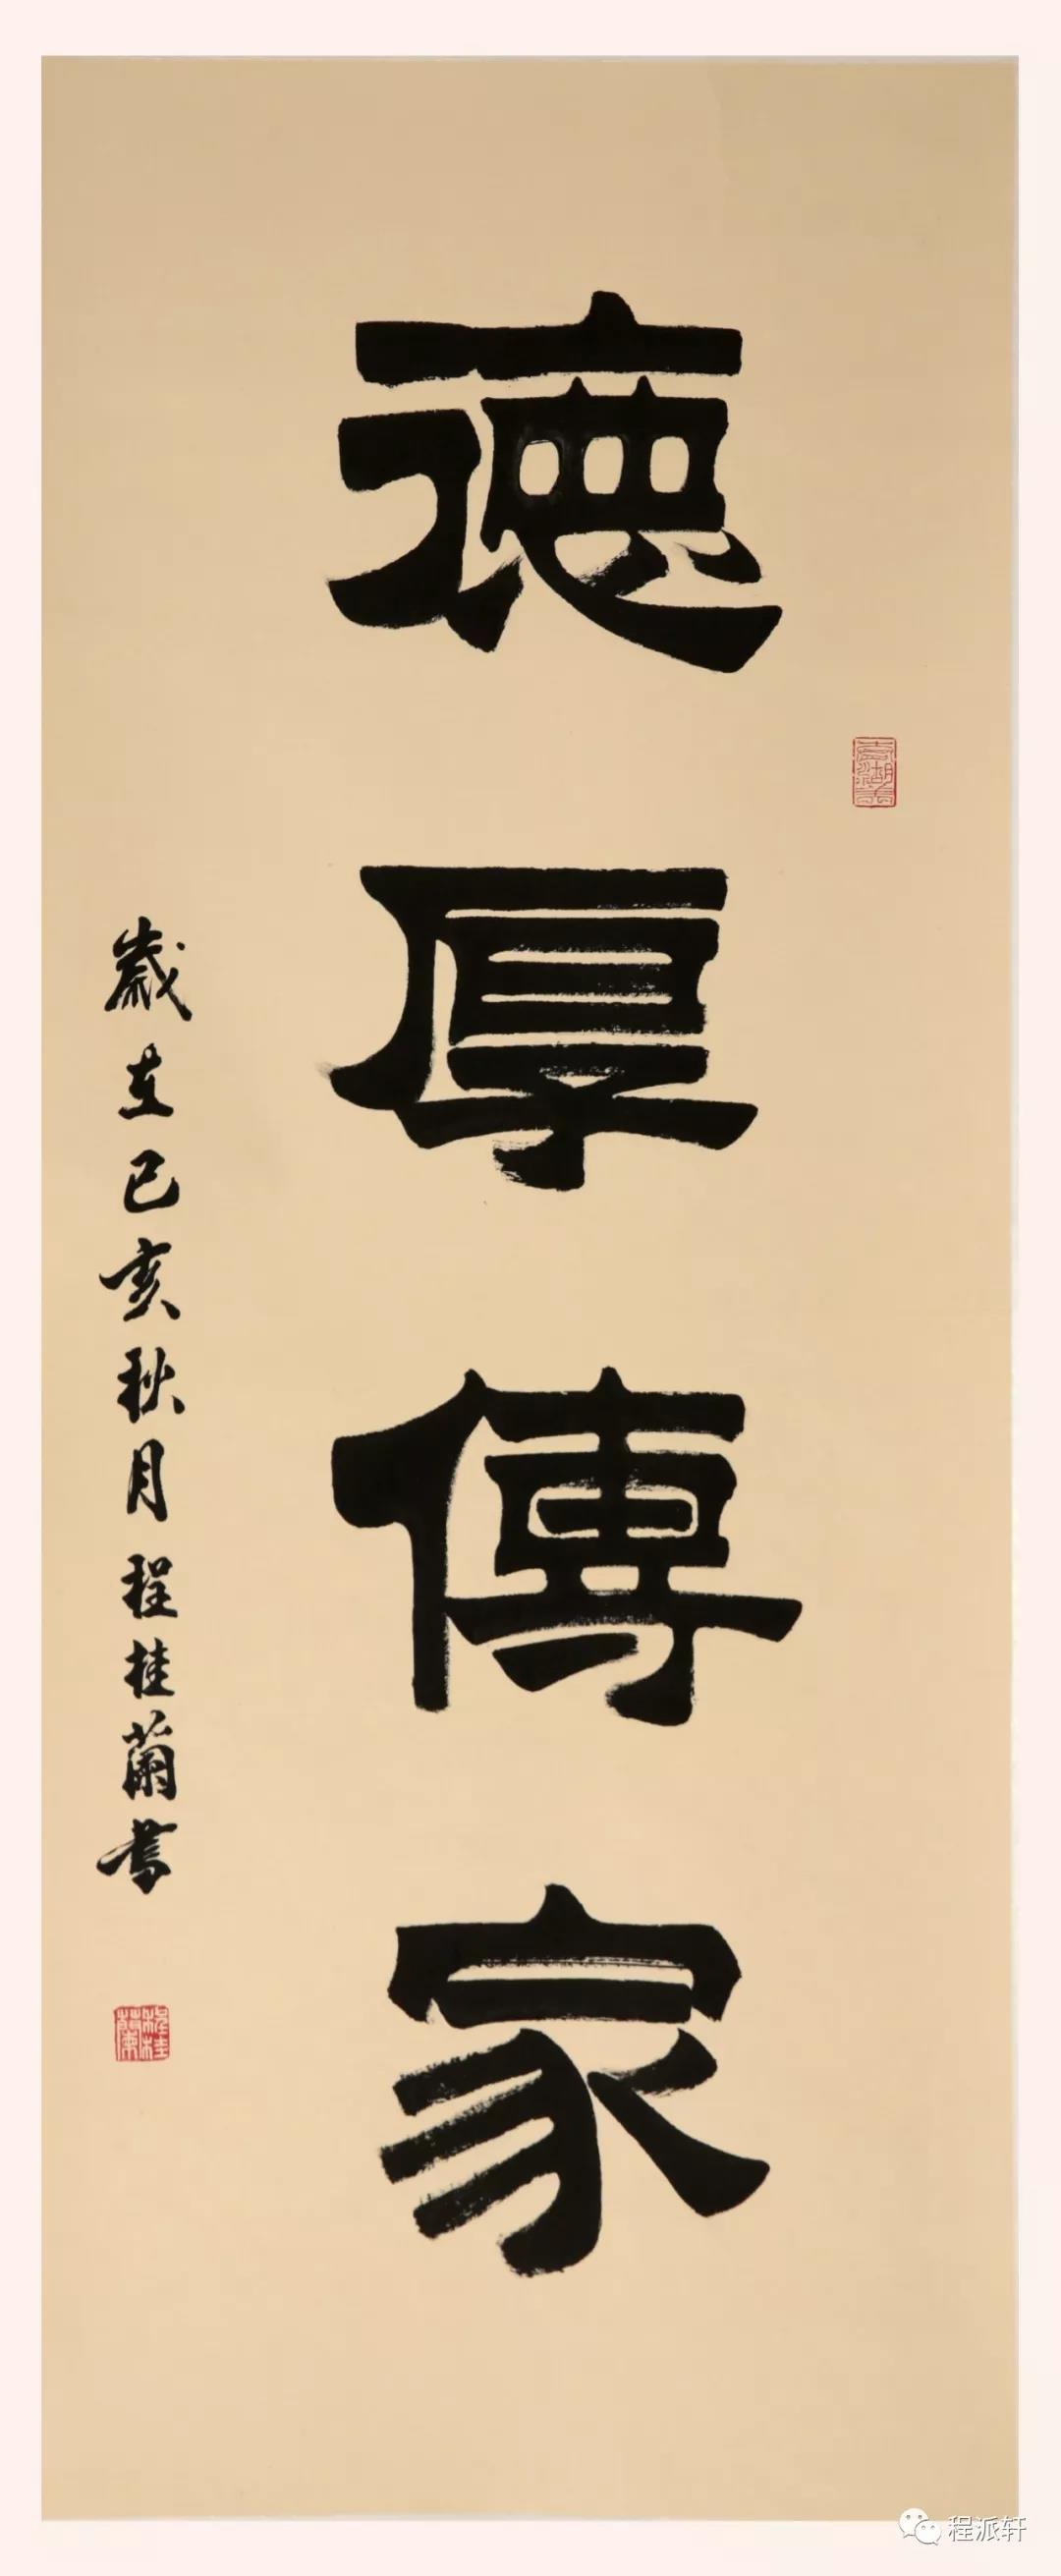 德厚傳家
歲在己亥秋月程桂蘭書
程桂蘭
程派轩